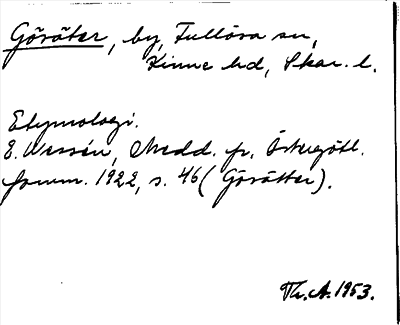 Göråter, by, Fullösa sn,
Kinne hd, Skar. l.
Etymologi.
E. Wessén, Medd. fr. Östergötl.
fornm. 1922, s. 46 (Görätter).
Th. A. 1953.